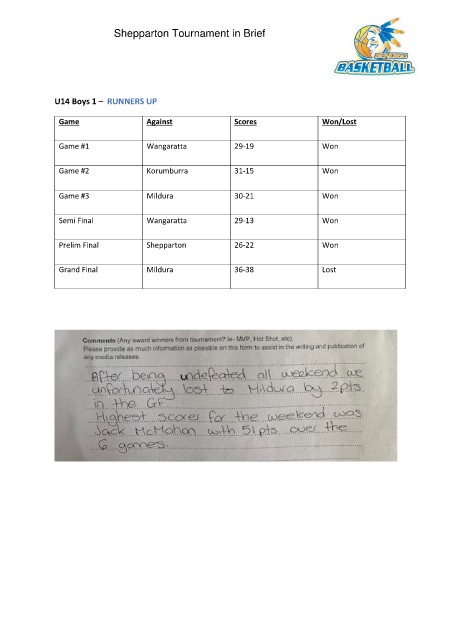 Shepparton Tournament in Brief
BASKETBALL
U14 Boys 1 – RUNNERS UP
Game Against Scores Won/Lost
Game #1 Wangaratta 29-19 Won
Game #2 Korumburra 31-15 Won
Game #3 Mildura 30-21 Won
Semi Final Wangaratta 29-13 Won
Prelim Final Shepparton 26-22 Won
Grand Final Mildura 36-38 Lost
Comments (Any award winners from tournament? ie- MVP, Hot Shot, etc).
Please provide as much information as possible on this form to assist in the writing and publication of
any media releases.
After being undefeated all weekend we
unfortunately lost to Mildura by 2pts
in the GF
Highest scorer for the weekend was
Jack McMahon with 51pts over the
6 games.